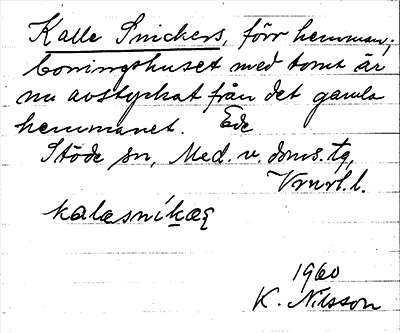 Kalle Snickers, förr hemman;
boningshuset med tomt är
nu avstyckat från det gamla
hemmanet. Ede
Stöde sn, Med. v. doms. tg,
Vnrl. l.
kalæsníkæʂ
1960
K. Nilsson